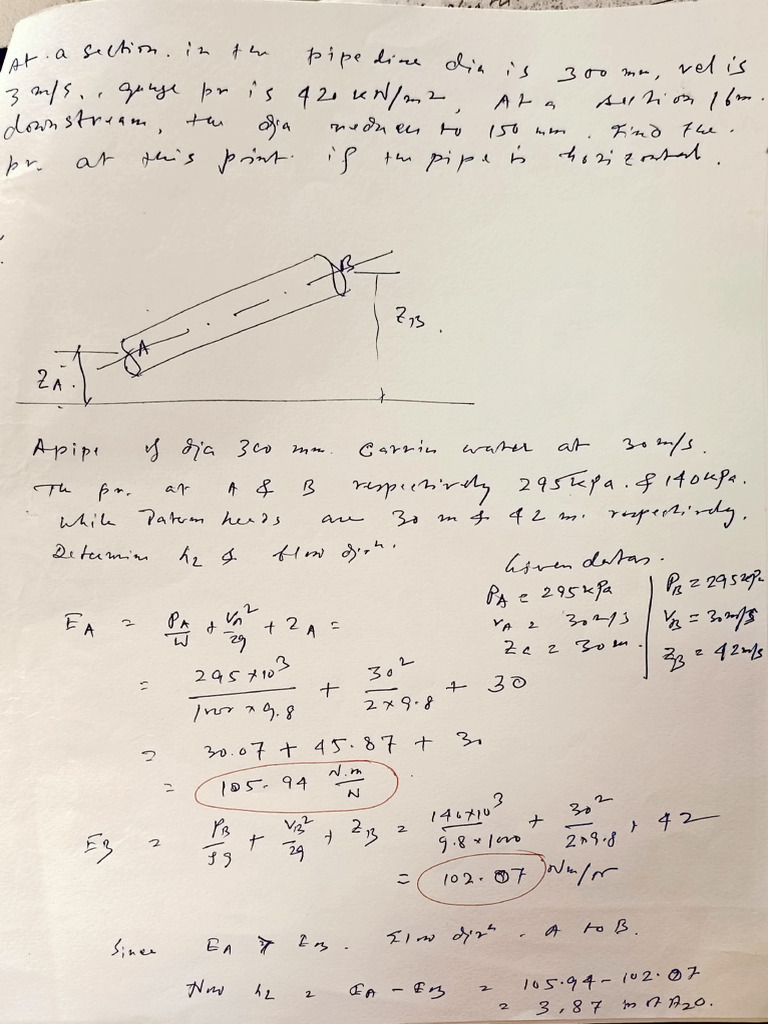 At a section in the pipe line dia is 300 mm, vel is
3 m/s, gauge pr is 420 kN/m2, At a section 16m
downstream, the dia reduces to 150 mm. Find the
pr. at this point if the pipe is horizontal.
B
A
ZB
ZA
A pipe of dia 300 mm. Carries water at 30 m/s.
The pr. at A & B respectively 295kpa. & 140kpa.
while Datum heads are 30 m & 42 m. respectively.
Determine hL & flow dirn.
Given datas.
PA = 295kPa
VA = 30m/s
ZA = 30m.
PB = 295kPa
VB = 30m/s
ZB = 42m/s
EA = PA/W + VA²/2g + ZA =
= 295×10³/1000×9.8 + 30²/2×9.8 + 30
= 30.07 + 45.87 + 30
= 105.94 N.m/N
EB = PB/ρg + VB²/2g + ZB = 140×10³/9.8×1000 + 30²/2×9.8 + 42
= 102.07 Nm/N
Since EA > EB. Flow dirn. A to B.
Now hL = EA - EB = 105.94 - 102.07
= 3.87 m of H2O.